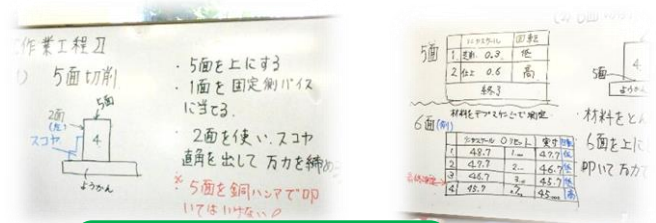 作業工程Ⅱ
1) 5面切削
5面
2面
(左)
スコヤ
4
ようかん
・5面を上にする
・1面を固定側バイス
に当てる.
・2面を使い.スコヤ
直角を出して万力を締め
※5面を銅ハンマで叩
いてはいけない
5面
リニアスケール 回転
1 荒削 0.3 低
2 仕上 0.6 高
終了
材料をデプスゲージで測定.
6面(例)
リニアスケール 0リセット 実寸 回転
1 48.7 47.7 低
2 47.7 46.7 低
3 46.7 45.7 低
4 45.7 45mm 高
4
5面
ようかん
・材料をとん
6面を上に
叩いて万力で